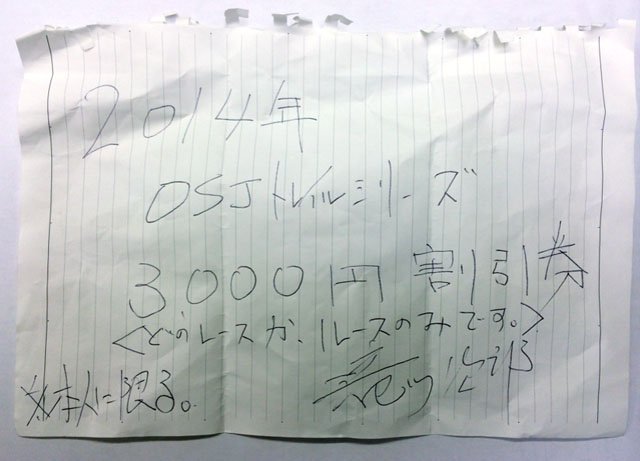 2014年
OSJトレイルシリーズ
3000円 割引券
<どのレースか、1レースのみです。>
※本人に限る。